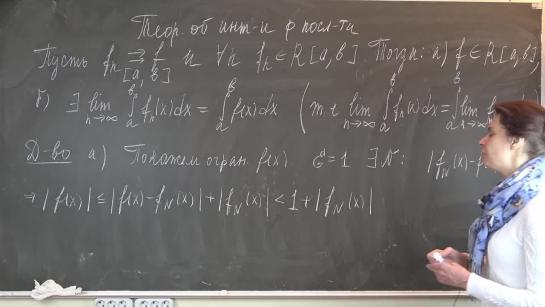 Теор. об инт-и ф посл-ти
Пусть fₙ ⇉ f и ∀n fₙ ∈ R[a,b] Тогда: а) f ∈ R[a,b],
[a,b]
б) ∃ lim n→∞ ∫ₐᵇ fₙ(x)dx = ∫ₐᵇ f(x)dx (т е lim n→∞ ∫ₐᵇ fₙ(x)dx = ∫ₐᵇ lim n→∞ fₙ
Д-во а) Покажем огран. f(x). ε=1 ∃N: |f_N(x)-f
⇒ |f(x)| ≤ |f(x)-f_N(x)|+|f_N(x)| < 1+|f_N(x)|